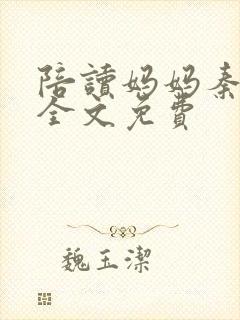 陪讀媽媽秦
全文免費
魏玉潔